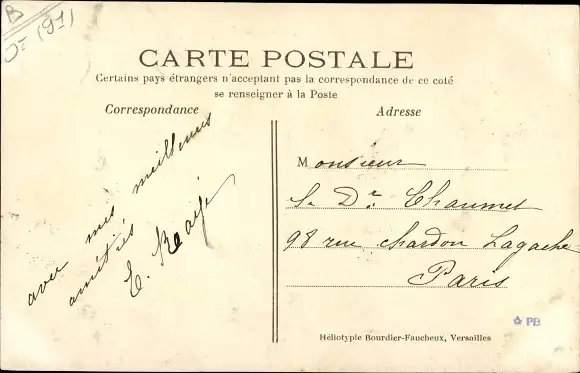 B
Dr (91)
CARTE POSTALE
Certains pays étrangers n'acceptant pas la correspondance de ce coté
se renseigner à la Poste
Correspondance
avec mes meilleures
amitiés
Adresse
Monsieur
Le Dr. Chaumet
98 rue Chardon Lagache
Paris
PB
Héliotypie Bourdier-Faucheux, Versailles